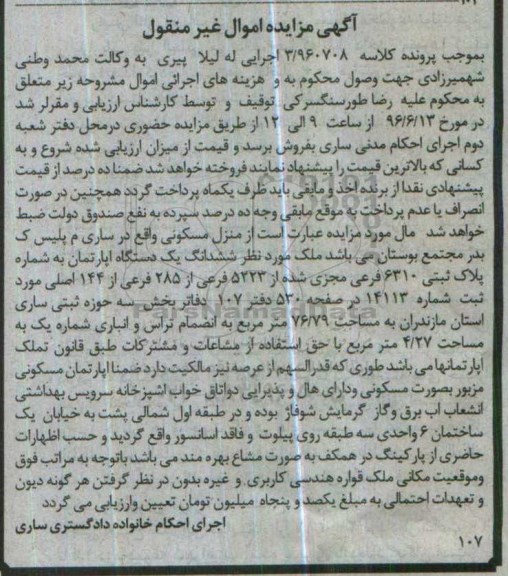 آگهی مزایده اموال غیر منقول
بموجب پرونده کلاسه ۳/۹۶۰۷۰۸ اجرایی له لیلا پیری به وکالت محمد وطنی
شهمیرزادی جهت وصول محکوم به و هزینه های اجرائی اموال مشروحه زیر متعلق
به محکوم علیه رضا طورسنگسرکی توقیف و توسط کارشناس ارزیابی و مقرلر شد
در مورخ ۹۶/۶/۱۳ از ساعت ۹ الی ۱۲ از طریق مزایده حضوری درمحل دفتر شعبه
دوم اجرای احکام مدنی ساری بفروش برسد و قیمت از میزان ارزیابی شده شروع و به
کسانی که بالاترین قیمت را پیشنهاد نمایند فروخته خواهد شد ضمنا ده درصد از قیمت
پیشنهادی نقدا از برنده اخذ و مابقی باید ظرف یکماه پرداخت گردد همچنین در صورت
انصراف یا عدم پرداخت به موقع مابقی وجه ده درصد سپرده به نفع صندوق دولت ضبط
خواهد شد مال مورد مزایده عبارت است از منزل مسکونی واقع در ساری م پلیس ک
بدر مجتمع بوستان می باشد ملک مورد نظر ششدانگ یک دستگاه اپارتمان به شماره
پلاک ثبتی ۶۳۱۰ فرعی مجزی شده از ۵۲۲۳ فرعی از ۲۸۵ فرعی از ۱۴۴ اصلی مورد
ثبت شماره ۱۴۱۱۳ در صفحه ۵۳۰ دفتر ۱۰۷ دفاتر بخش سه حوزه ثبتی ساری
استان مازندران به مساحت ۷۶/۷۹ متر مربع به انضمام تراس و انباری شماره یک به
مساحت ۴/۲۷ متر مربع با حق استفاده از مشاعات و مشترکات طبق قانون تملک
اپارتمانها می باشد طوری که قدرالسهم از عرصه نیز مالکیت دارد ضمنا اپارتمان مسکونی
مزبور بصورت مسکونی ودارای هال و پذیرایی دواتاق خواب اشپزخانه سرویس بهداشتی
انشعاب اب برق و گاز گرمایش شوفاژ بوده و در طبقه اول شمالی پشت به خیابان یک
ساختمان ۶ واحدی سه طبقه روی پیلوت و فاقد اسانسور واقع گردید و حسب اظهارات
حاضری از پارکینگ در همکف به صورت مشاع بهره مند می باشد باتوجه به مراتب فوق
وموقعیت مکانی ملک قواره هندسی کاربری و غیره بدون در نظر گرفتن هر گونه دیون
و تعهدات احتمالی به مبلغ یکصد و پنجاه میلیون تومان تعیین وارزیابی می گردد
اجرای احکام خانواده دادگستری ساری
۱۰۷
ParsNamadData